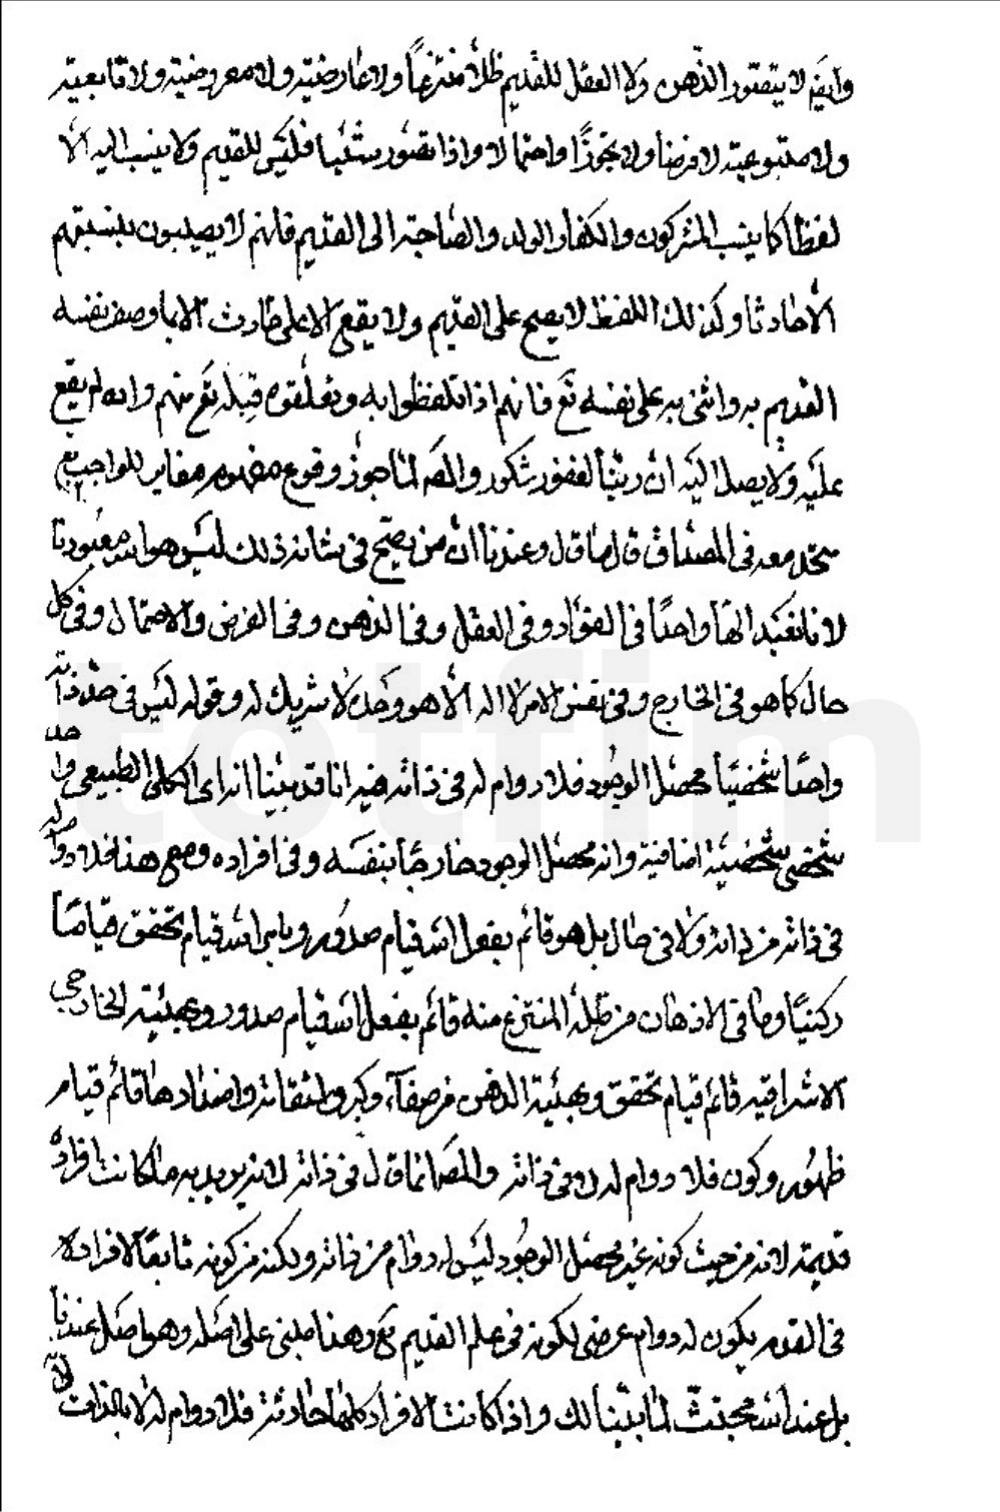 وايضا لا يتصور الذهن ولا العقل للقديم ظلا منتزعا ولا عارضية ولا معروضية ولا تابعية
ولا متبوعية لا فرضا ولا تجوزا واحتمالا واذا تصور شيئا فليس للقديم ولا ينسب اليه الا
لفظا كما ينسب المشركون والكفار الولد والصاحبة الى القديم فانهم لا يصيبون بنسبتهم
الا حادثا وكذلك اللفظ لا يصح على القديم ولا يقع الا على حادث الا ما وصف نفسه
القديم به واثنى به على نفسه تع فانهم اذا تلفظوا به وتعلقوه قبله تع منهم وان لم يقع
عليه ولا يصل اليه ان ربنا لغفور شكور والمص لما جوز وقوع مفهوم مغاير للواجب تع
متحد معه في المصداق قال ما قال وعندنا ان من يصح في شانه ذلك ليس هو معبودنا
لانا نعبد الها واحدا في الفؤاد وفي العقل وفي الذهن وفي الفرض والاحتمال وفي كل
حال كما هو في الخارج وفي نفس الامر لا اله الا هو وحده لا شريك له وقوله ليس في حد ذاته
واحدا شخصيا محصل الوجود فلا دوام له في ذاته فيه انا قد بينا انه اي الكلي الطبيعي واحد
شخصي شخصية اضافية وانه محصل الوجود خارجا بنفسه وفي افراده ومع هذا فلا دوام له
في ذاته من ذاته ولا في حال بل هو قائم بفعل الله قيام صدور وبامر الله قيام تحقق قياما
ركنيا وما في الاذهان من ظله المنتزع منه قائم بفعل الله قيام صدور وبهيئته الخارجي
الاشراقية قائم قيام تحقق وبهيئة الذهن من صفائه وكبره واضدادها قائم قيام
ظهور وكون فلا دوام له لا في ذاته والمص انما قال في ذاته لانه يريد به ما كانت افراده
قديمة لانه من حيث كونه غير محصل الوجود ليس له دوام من ذاته ولكنه من كونه تابعا لافراده
في القدم يكون له دوام عرضي لكونه في علم القديم تع وهذا مبني على اصله وهو اصل عندنا
بل عند الله مجتث لما بينا لك واذا كانت الافراد كلها حادثة فلا دوام له لا بالذات لان